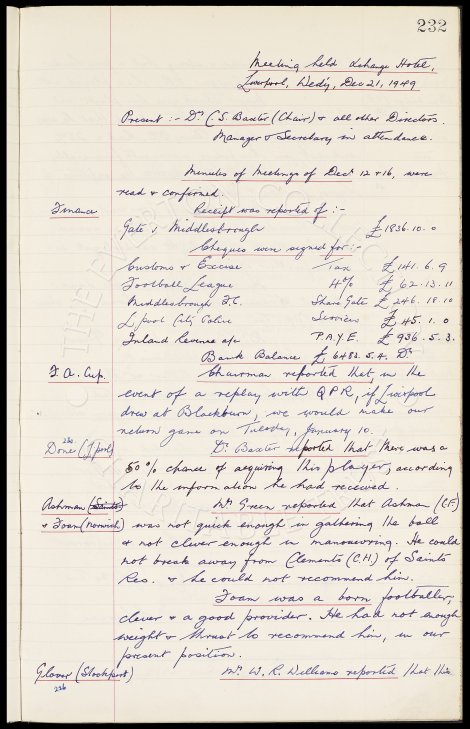 232
Meeting held Exchange Hotel,
Liverpool, Wed'y, Dec 21, 1949
Present :- Dr. C.S. Baxter (Chair) & all other Directors.
Manager & Secretary in attendance.
Minutes of Meetings of Dec 12 & 16, were
read & confirmed.
Finance Receipt was reported of :-
Gate v Middlesbrough £1836.10.0
Cheques were signed for :-
Customs & Excise Tax £141.6.9
Football League 4% £62.13.11
Middlesbrough F.C. Share Gate £246.18.10
L'pool City Police Services £45.1.0
Inland Revenue a/c P.A.Y.E. £936.5.3.
Bank Balance £6482.5.4. Dr.
F.A. Cup. Chairman reported that, in the
event of a replay with QPR, if Liverpool
drew at Blackburn, we would make our
return game on Tuesday, January 10.
236
Done (L'pool) Dr. Baxter reported that there was a
50% chance of acquiring this player, according
to the information he had received.
Ashman (Saints) Mr Green reported that Ashman (C.F.)
& Foan (Norwich) was not quick enough in gathering the ball
& not clever enough in manoeuvring. He could
not break away from Clements (C.H.) of Saints
Res. & he could not recommend him.
Foan was a born footballer,
clever & a good provider. He had not enough
weight & thrust to recommend him, in our
present position.
Glover (Stockport) Mr. W.R. Williams reported that this
236